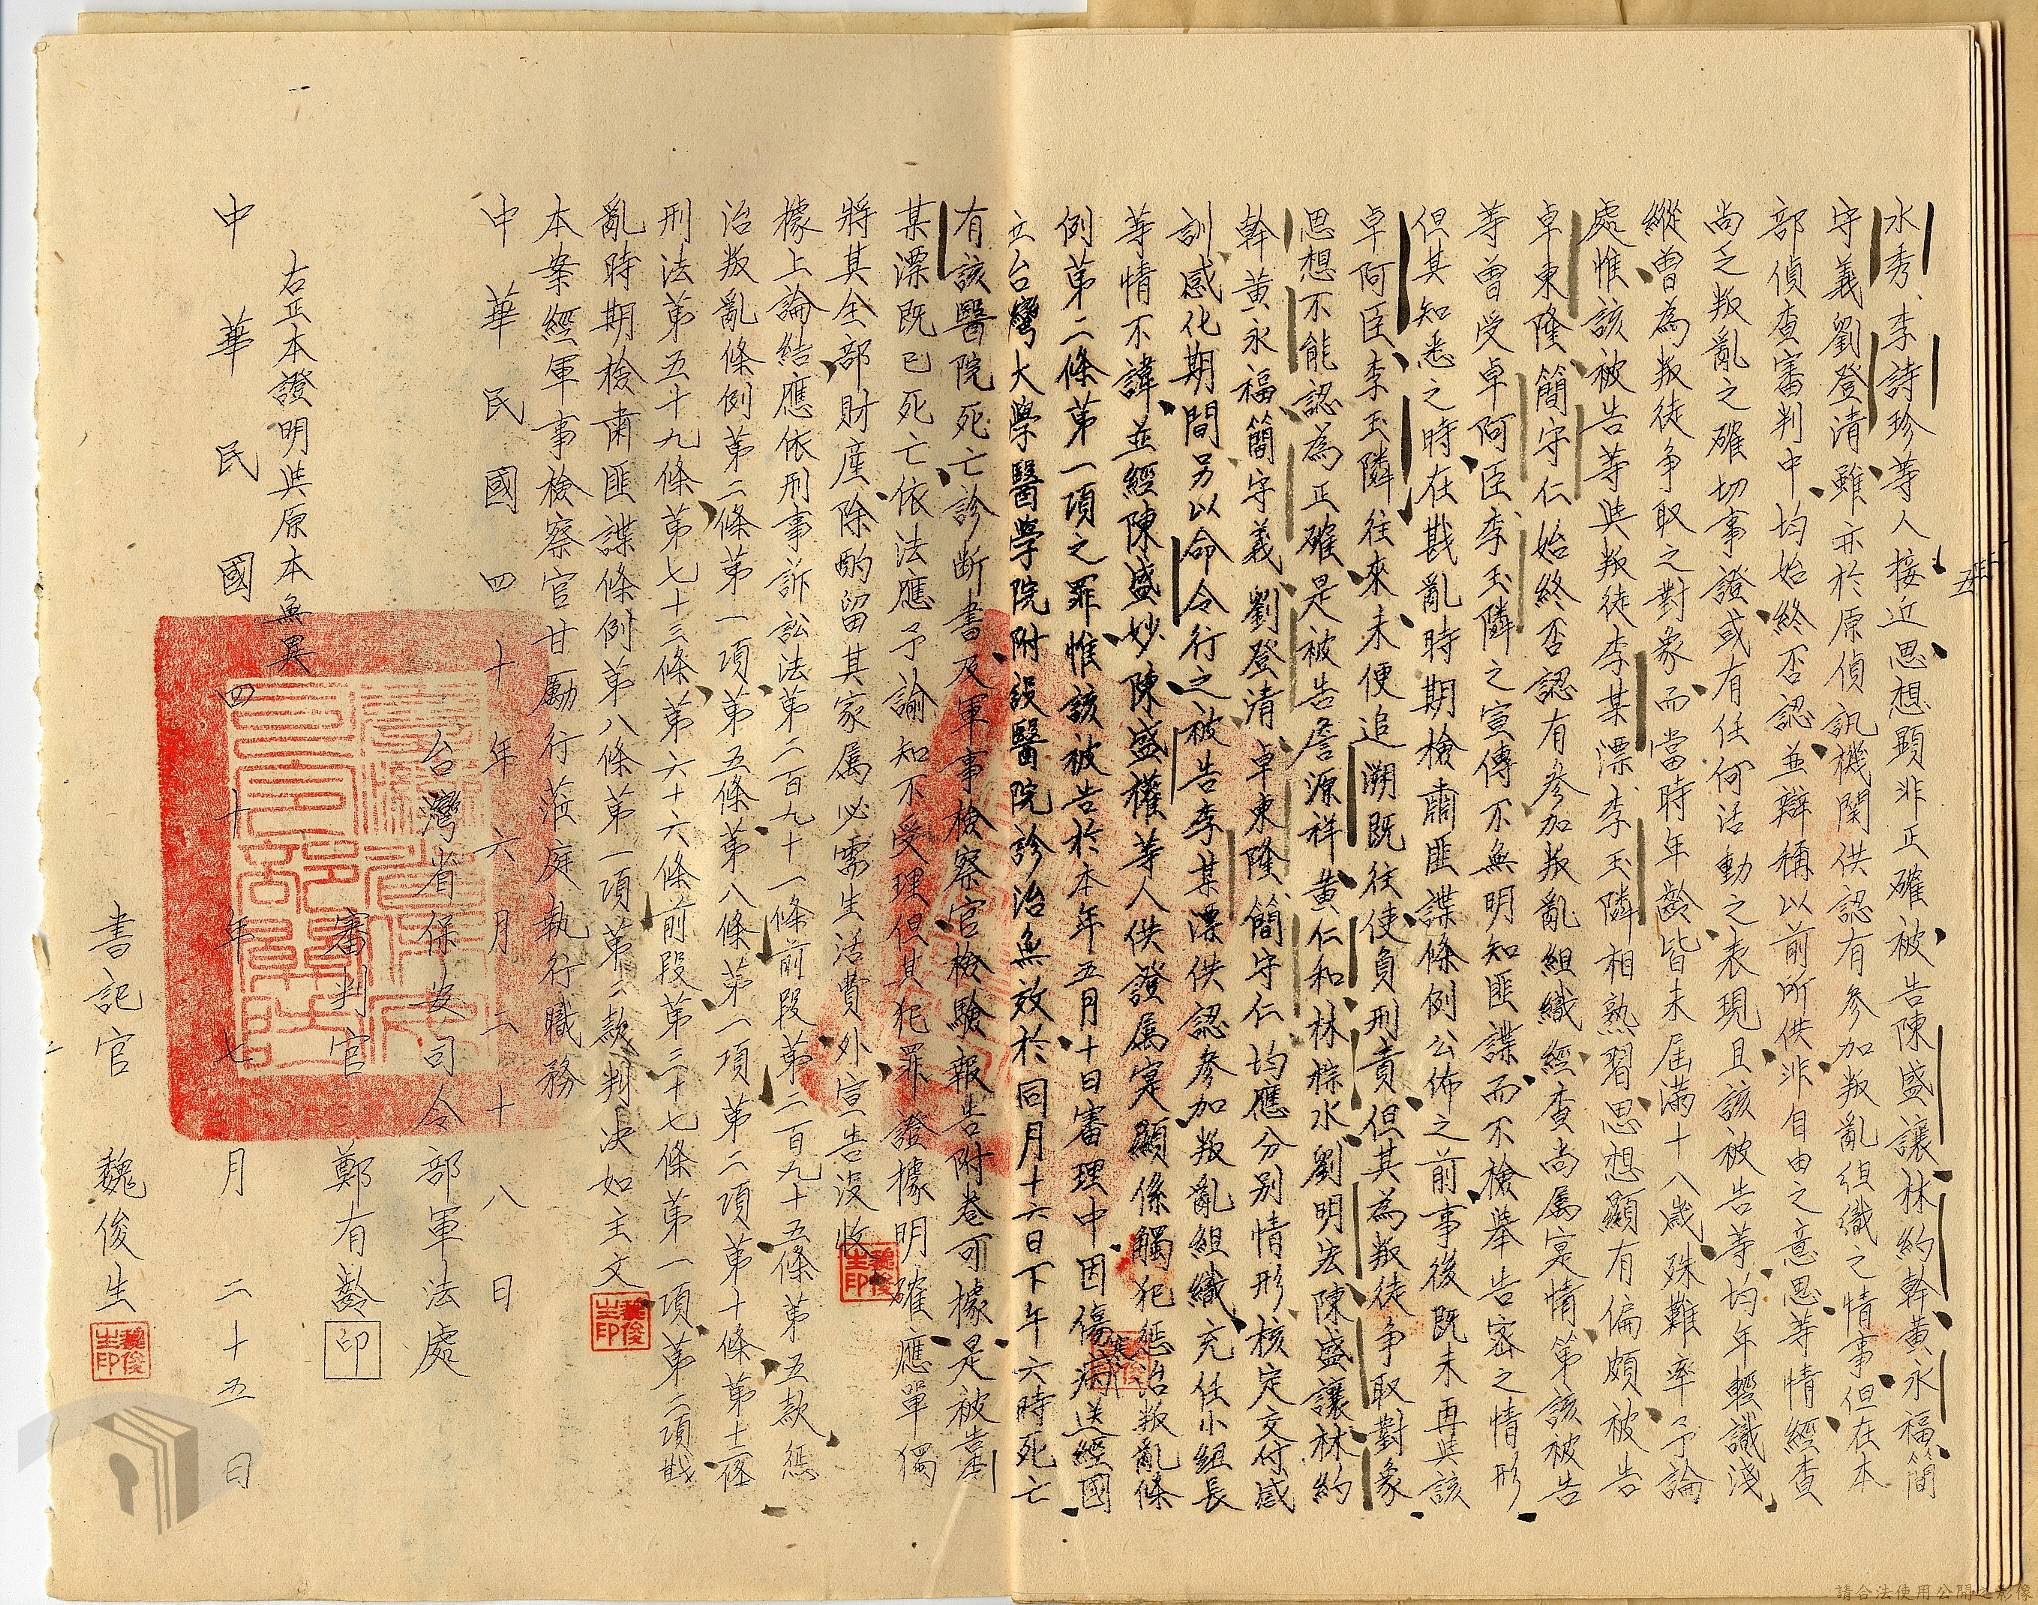 五
水秀、李詩珍等人接近思想顯非正確被告陳盛讓林約幹黃永福簡
守義劉登清雖亦於原偵訊機関供認有參加叛亂組織之情事但在本
部偵查審判中均始終否認並辯稱以前所供非自由之意思等情經查
尚乏叛亂之確切事證或有任何活動之表現且該被告等均年輕識淺
縱曾為叛徒争取之對象而當時年齡皆未屆滿十八歲殊難率予論
處惟該被告等與叛徒李某漂李玉隣相熟習思想顯有偏頗被告
卓東隆簡守仁始終否認有參加叛亂組織經查尚屬寔情第該被告
等曾受卓阿臣李玉隣之宣傳不無明知匪諜而不檢舉告密之情形
但其知悉之時在戡亂時期檢肅匪諜條例公佈之前事後既未再與該
卓阿臣李玉隣往來未便追溯既往使負刑責但其為叛徒争取對象
思想不能認為正確是被告詹源祥黃仁和林棕水劉明宏陳盛讓林約
幹黃永福簡守義劉登清卓東隆簡守仁均應分别情形核定交付感
訓感化期間另以命令行之被告李某漂供認參加叛亂組織充任小組長
等情不諱並經陳盛妙陳盛權等人供證屬寔顯係觸犯懲治叛亂條
例第二條第一項之罪惟該被告於本年五月十日審理中因傷寒病送經國
立台灣大學醫学院附設醫院診治無效於同月十六日下午六時死亡
有該醫院死亡診断書及軍事檢察官檢驗報告附卷可據是被告李
某漂既已死亡依法應予諭知不受理但其犯罪證據明確應單獨
將其全部財產除酌留其家屬必需生活費外宣告沒收
據上論結應依刑事訴訟法第二百九十一條前段第二百九十五條第五款懲
治叛亂條例第二條第一項第五條第八條第一項第二項第十條第十二條
刑法第五十九條第七十三條第六十六條前段第三十七條第一項第二項戡
亂時期檢肅匪諜條例第八條第一項第二款判决如主文
本案經軍事檢察官甘勵行蒞庭執行職務
中華民國四十年六月二十八日
台灣省保安司令部軍法處
審判官 鄭有齡 印
右正本證明與原本無異
中華民國四十年七月二十五日
書記官 魏俊生
魏俊生印
請合法使用公開之影像